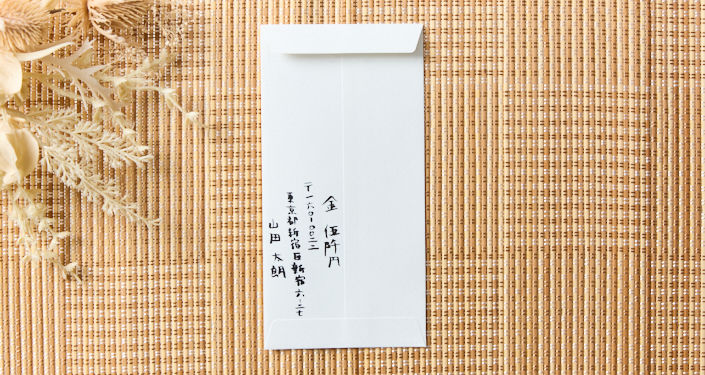 金 伍阡円
〒一六〇-〇〇二二
東京都新宿区新宿六-二七
山田 太朗